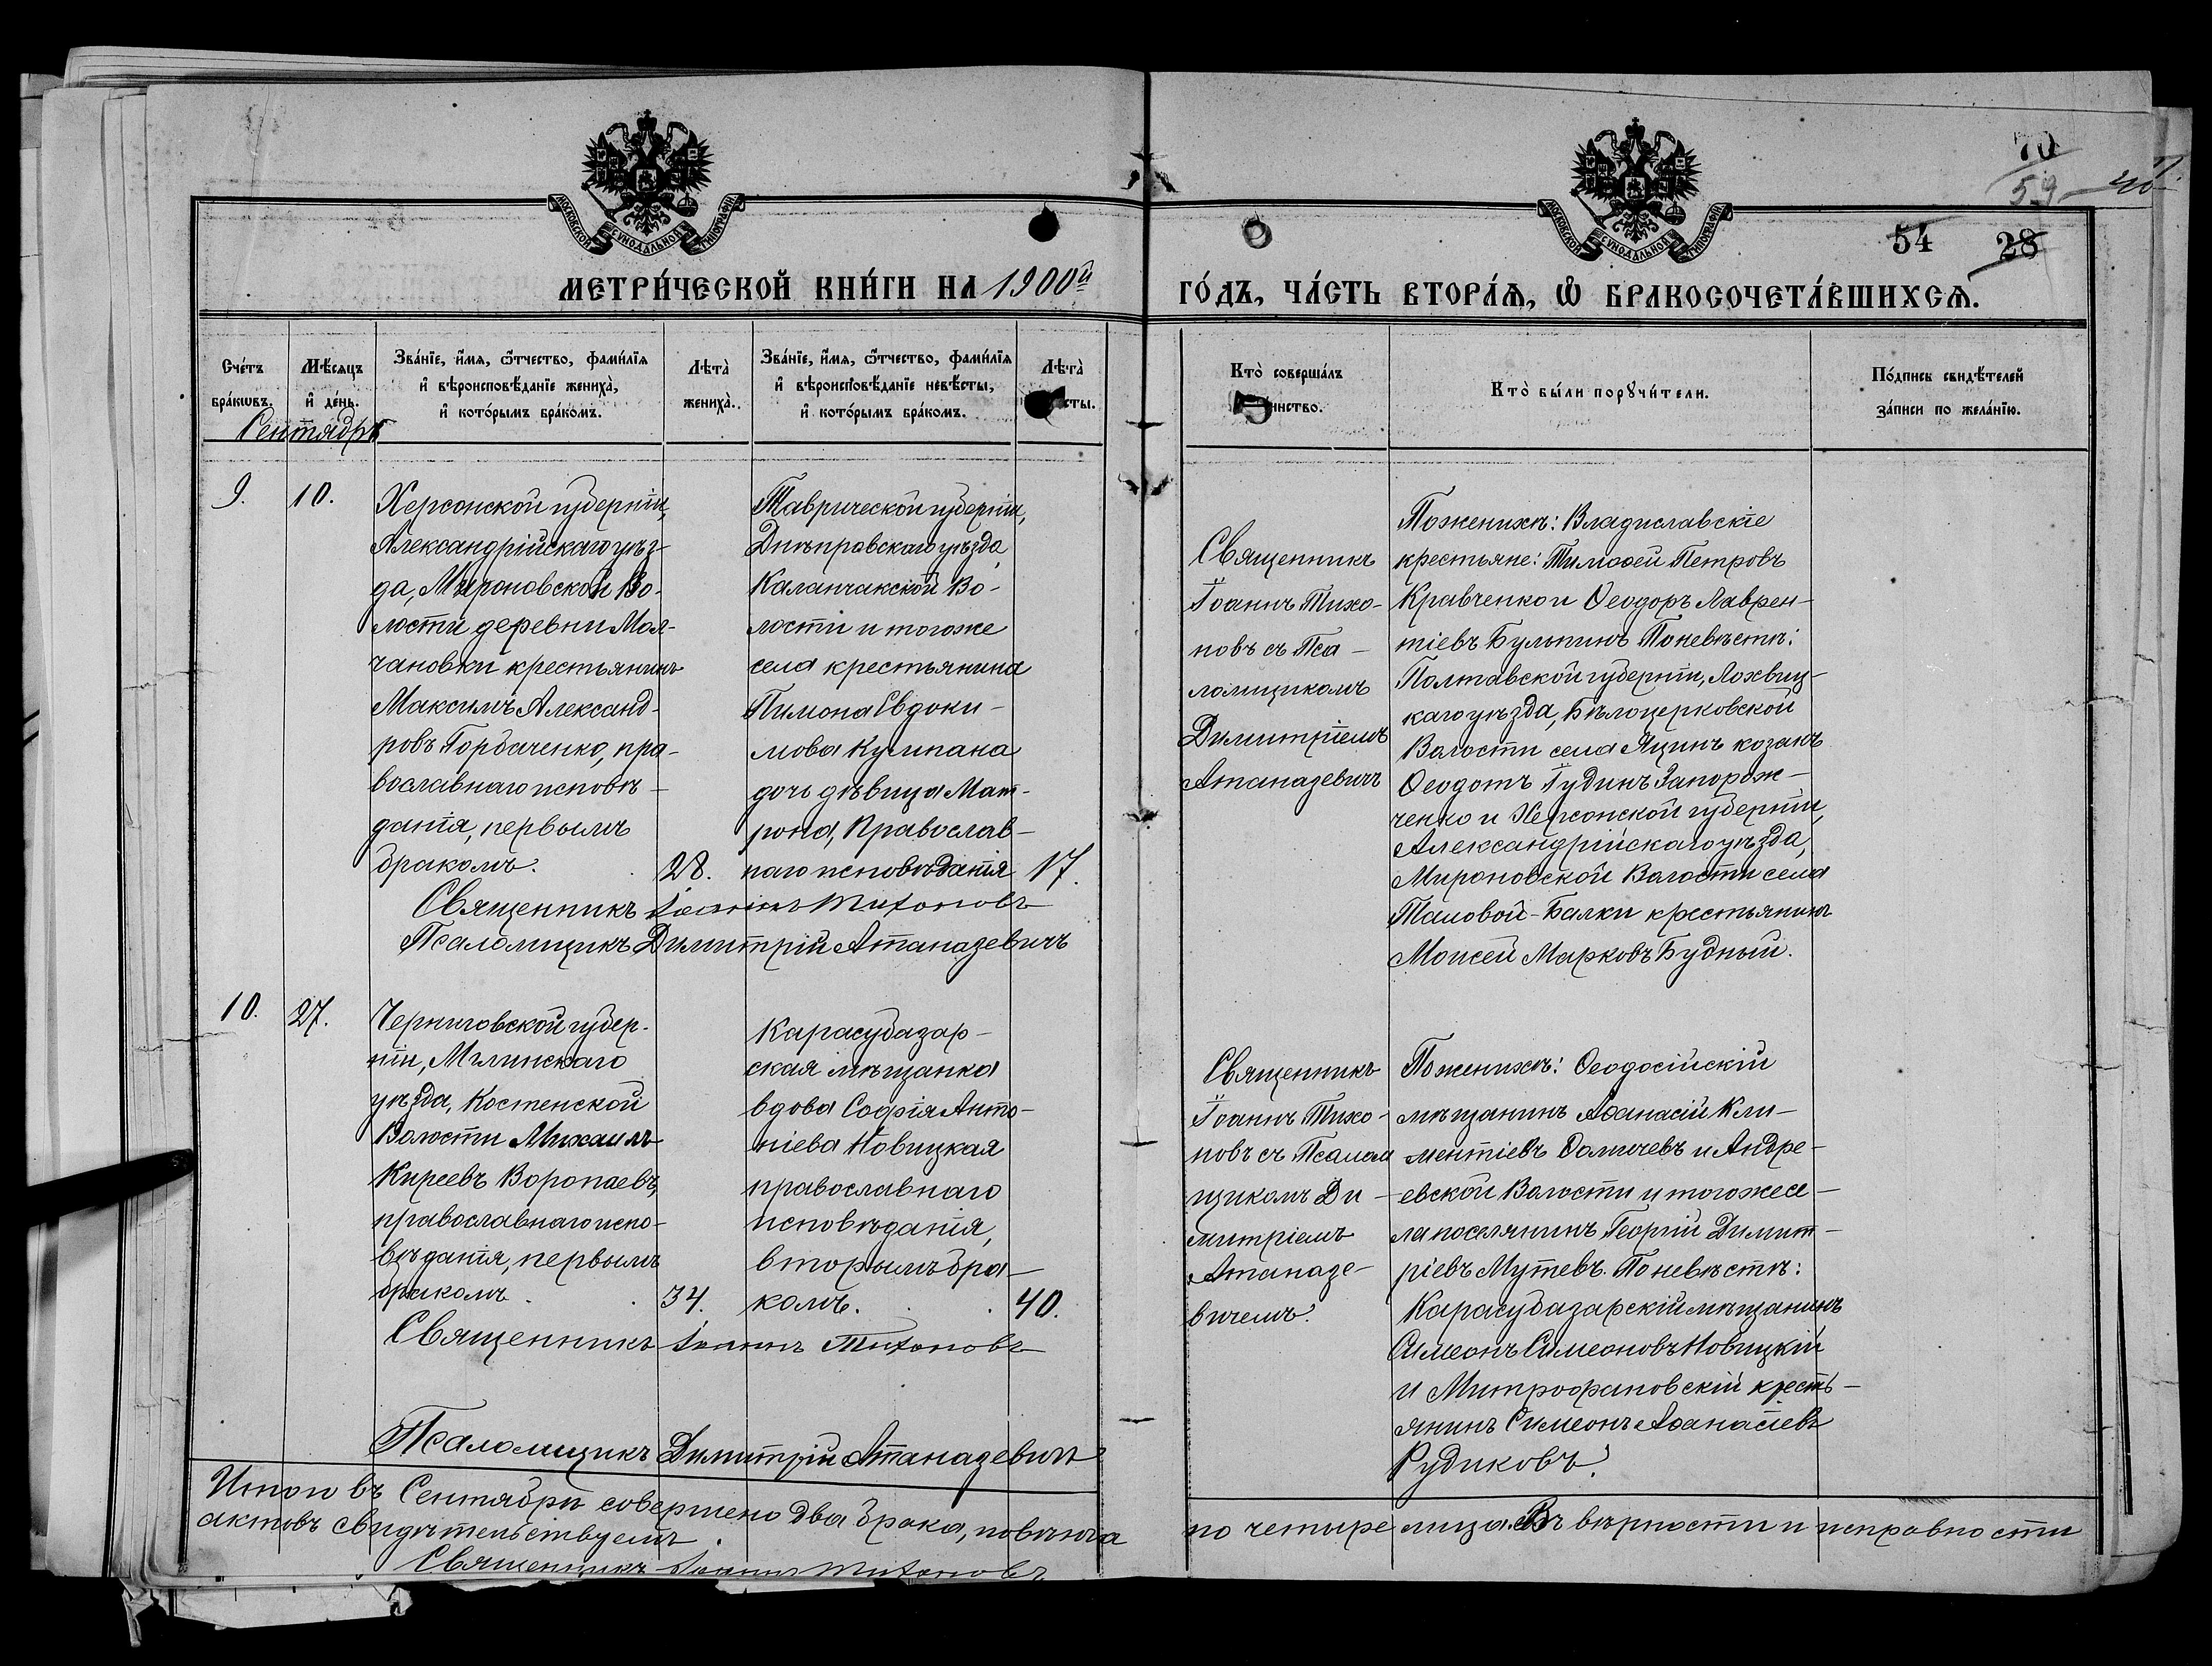 МОСКОВСКОЙ СѴНОДАЛЬНОЙ ТИПОГРАФІИ
МОСКОВСКОЙ СѴНОДАЛЬНОЙ ТИПОГРАФІИ
70
59
54 28
МЕТРИ́ЧЕСКОЙ КНИ́ГИ НА 1900й
ГО́ДЪ, ЧА́СТЬ ВТОРА́Ѧ, Ѡ҆ БРАКОСОЧЕТА́ВШИХСѦ.
Сче́тъ
бра́кѡвъ.
Мѣ́сѧцъ
и҆ де́нь.
Зва́нїе, и҆́мѧ, ѻ҆́тчество, фами́лїѧ
и҆ вѣроисповѣ́данїе жениха̀,
и҆ кото́рымъ бра́комъ.
Лѣта̀
жениха̀.
Зва́нїе, и҆́мѧ, ѻ҆́тчество, фами́лїѧ
и҆ вѣроисповѣ́данїе невѣ́сты,
и҆ кото́рымъ бра́комъ.
Лѣта̀
сты.
Кто̀ соверша́лъ
инство.
Кто̀ бы́ли порꙋчи́тели.
По́дпись свидѣ́телей
за́писи по жела́нїю.
Сентябрь
9.
10.
Херсонской губерніи,
Александрійскаго уѣз-
да, Мироновской Во-
лости деревни Мол-
чановки крестьянинъ
Максимъ Александ-
ровъ Горбаченко, пра-
вославнаго исповѣ-
данія, первымъ
бракомъ.
28.
Таврической губерніи,
Днѣпровскаго уѣзда,
Каланчакской Во-
лости и тогоже
села крестьянина
Пимона Евдоки-
мова Кулипана
дочь дѣвица Мат-
рона, Православ-
наго исповѣданія
17.
Священникъ Іоаннъ Тихоновъ
Псаломщикъ Димитрій Атаназевичъ
Священникъ
Іоаннъ Тихо-
новъ съ Пса-
ломщикомъ
Димитріемъ
Атаназевичъ
По женихѣ: Владиславскіе
крестьяне: Тимофей Петровъ
Кравченко и Ѳеодоръ Лаврен-
тіевъ Булыпинъ По невѣстѣ:
Полтавской губерніи, Лохвиц-
каго уѣзда, Бѣлоцерковской
Волости села Яцинъ козакъ
Ѳеодотъ Іудинъ Запорож-
ченко и Херсонской губерніи,
Александрійскаго уѣзда,
Мироновской Волости села
Таловой-Балки крестьянинъ
Моисей Марковъ Будный.
10.
27.
Черниговской губер-
ніи, Мглинскаго
уѣзда, Костенской
Волости Михаилъ
Киреевъ Воропаевъ,
православнаго испо-
вѣданія, первымъ
бракомъ.
34.
Карасубазар-
ская мѣщанка
вдова Софія Анто-
ніева Новицкая
православнаго
исповѣданія,
вторымъ бра-
комъ.
40.
Священникъ Іоаннъ Тихоновъ
Псаломщикъ Димитрій Атаназевичъ
Священникъ
Іоаннъ Тихо-
новъ съ Псалом
щикомъ Ди-
митріемъ
Атаназе-
вичемъ.
По женихѣ: Ѳеодосійскій
мѣщанинъ Аѳанасій Кли-
ментіевъ Домичевъ и Андре-
евской Волости и тогоже се-
ла поселянинъ Георгій Димит-
ріевъ Мутевъ. По невѣстѣ:
Карасубазарскій мѣщанинъ
Симеонъ Симеоновъ Новицкій
и Митрофановскій кресть-
янинъ Симеонъ Аѳанасіевъ
Рудиковъ.
Итого въ Сентябрѣ совершено два брака, повѣнча
но четыре лица. Въ вѣрности и исправности
актовъ свидѣтельствуемъ.
Священникъ Іоаннъ Тихоновъ